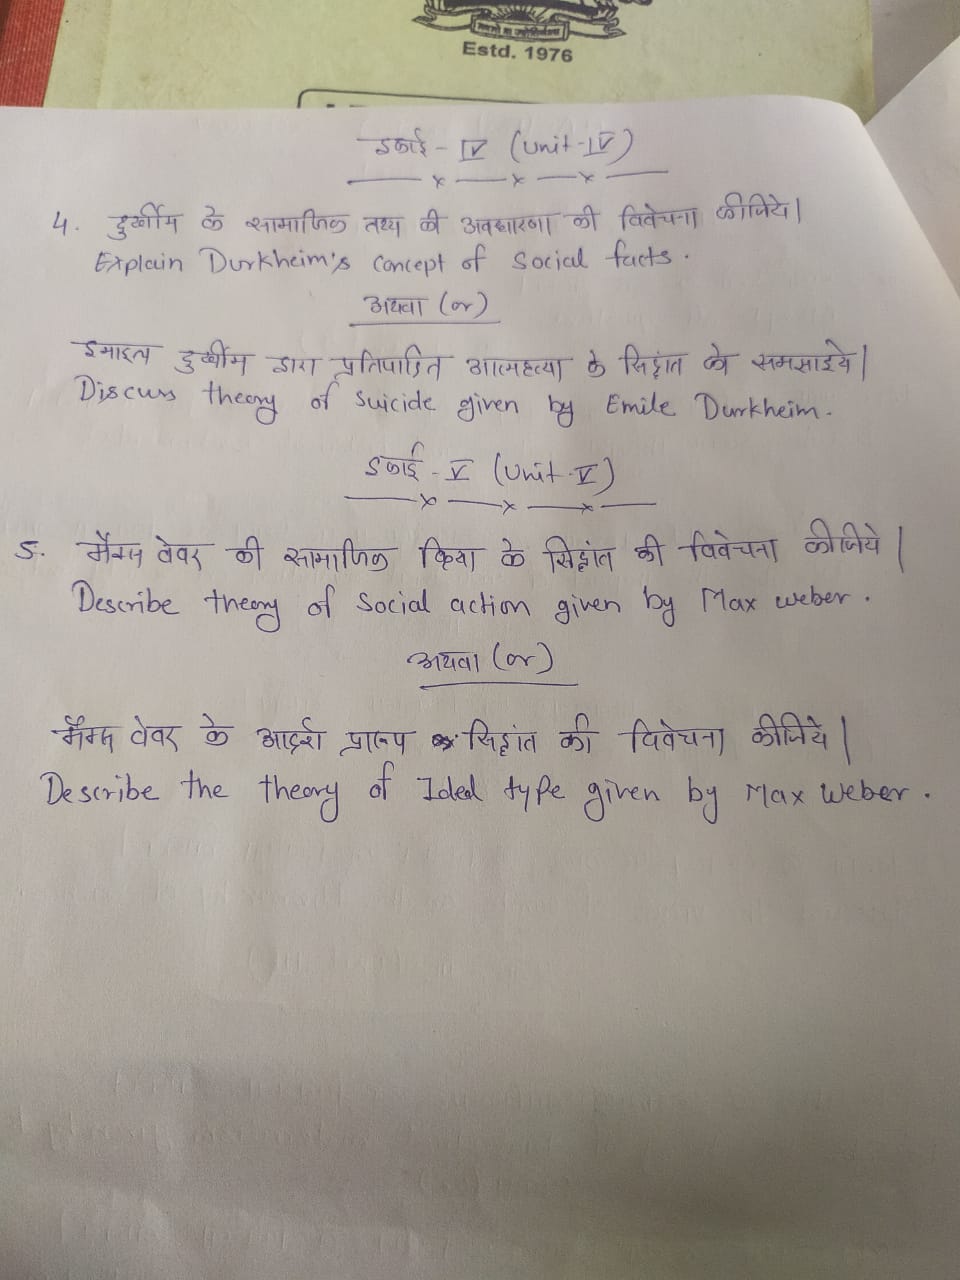 Estd. 1976
इकाई - IV (Unit-IV)
4. दुर्खीम के सामाजिक तथ्य की अवधारणा की विवेचना कीजिये।
Explain Durkheim's concept of social facts.
अथवा (or)
इमाइल दुर्खीम द्वारा प्रतिपादित आत्महत्या के सिद्धांत को समझाइये।
Discuss theory of suicide given by Emile Durkheim.
इकाई - V (Unit-V)
5. मैक्स वेबर की सामाजिक क्रिया के सिद्धांत की विवेचना कीजिये।
Describe theory of social action given by Max weber.
अथवा (or)
मैक्स वेबर के आदर्श प्रारूप सिद्धांत की विवेचना कीजिये।
Describe the theory of Ideal type given by Max Weber.